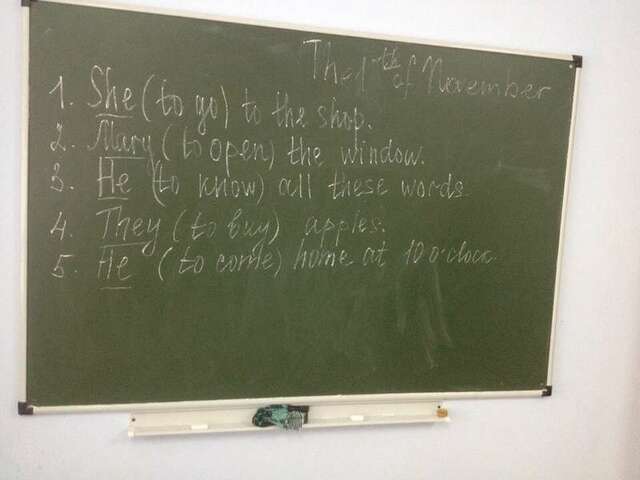 The 17th of November
1. She (to go) to the shop.
2. Mary (to open) the window.
3. He (to know) all these words
4. They (to buy) apples.
5. He (to come) home at 10 o'clock.